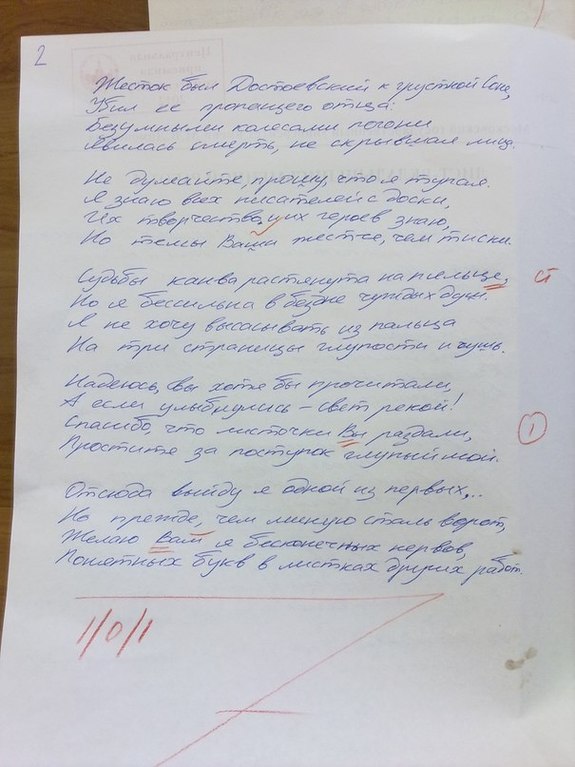 2
Жесток был Достоевский к грустной Соне,
Убил ее пропащего отца:
Безумными колесами погони
Явилась смерть, не скрывшая лица.
Не думайте, прошу, что я тупая.
Я знаю всех писателей с доски,
Их творчество, их героев знаю,
Но темы Ваши жестче, чем тиски.
Судьбы канва растянута на пяльце,
ст
Но я бессильна в бездне чуждых душ.
Я не хочу высасывать из пальца
На три страницы глупости и чушь.
Надеюсь, вы хотя бы прочитали,
А если улыбнулись – свет рекой!
Спасибо, что листочки Вы раздали,
1
Простите за поступок глупый мой.
Отсюда выйду я одной из первых,..
Но прежде, чем миную сталь ворот,
Желаю Вам я бесконечных нервов,
Понятных букв в листках других работ.
1/0/1